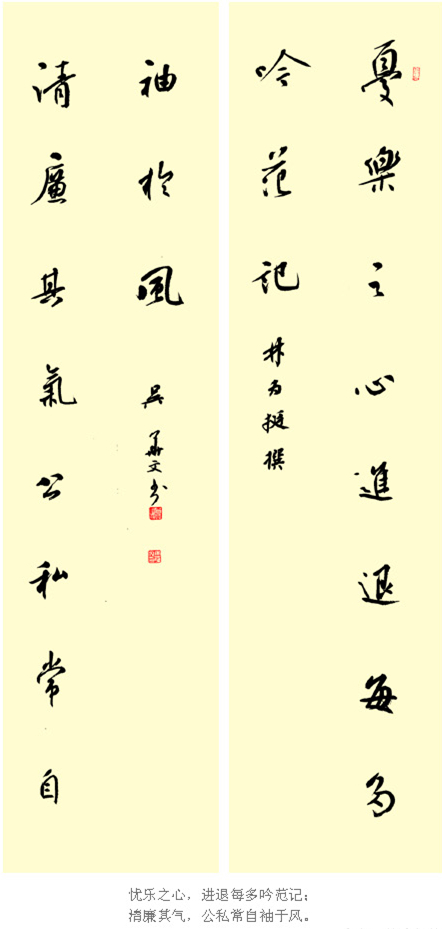 憂樂之心進退每多
吟范記
林为挺撰
清廉其氣公私常自
袖於風
吴華文书
忧乐之心，进退每多吟范记；
清廉其气，公私常自袖于风。